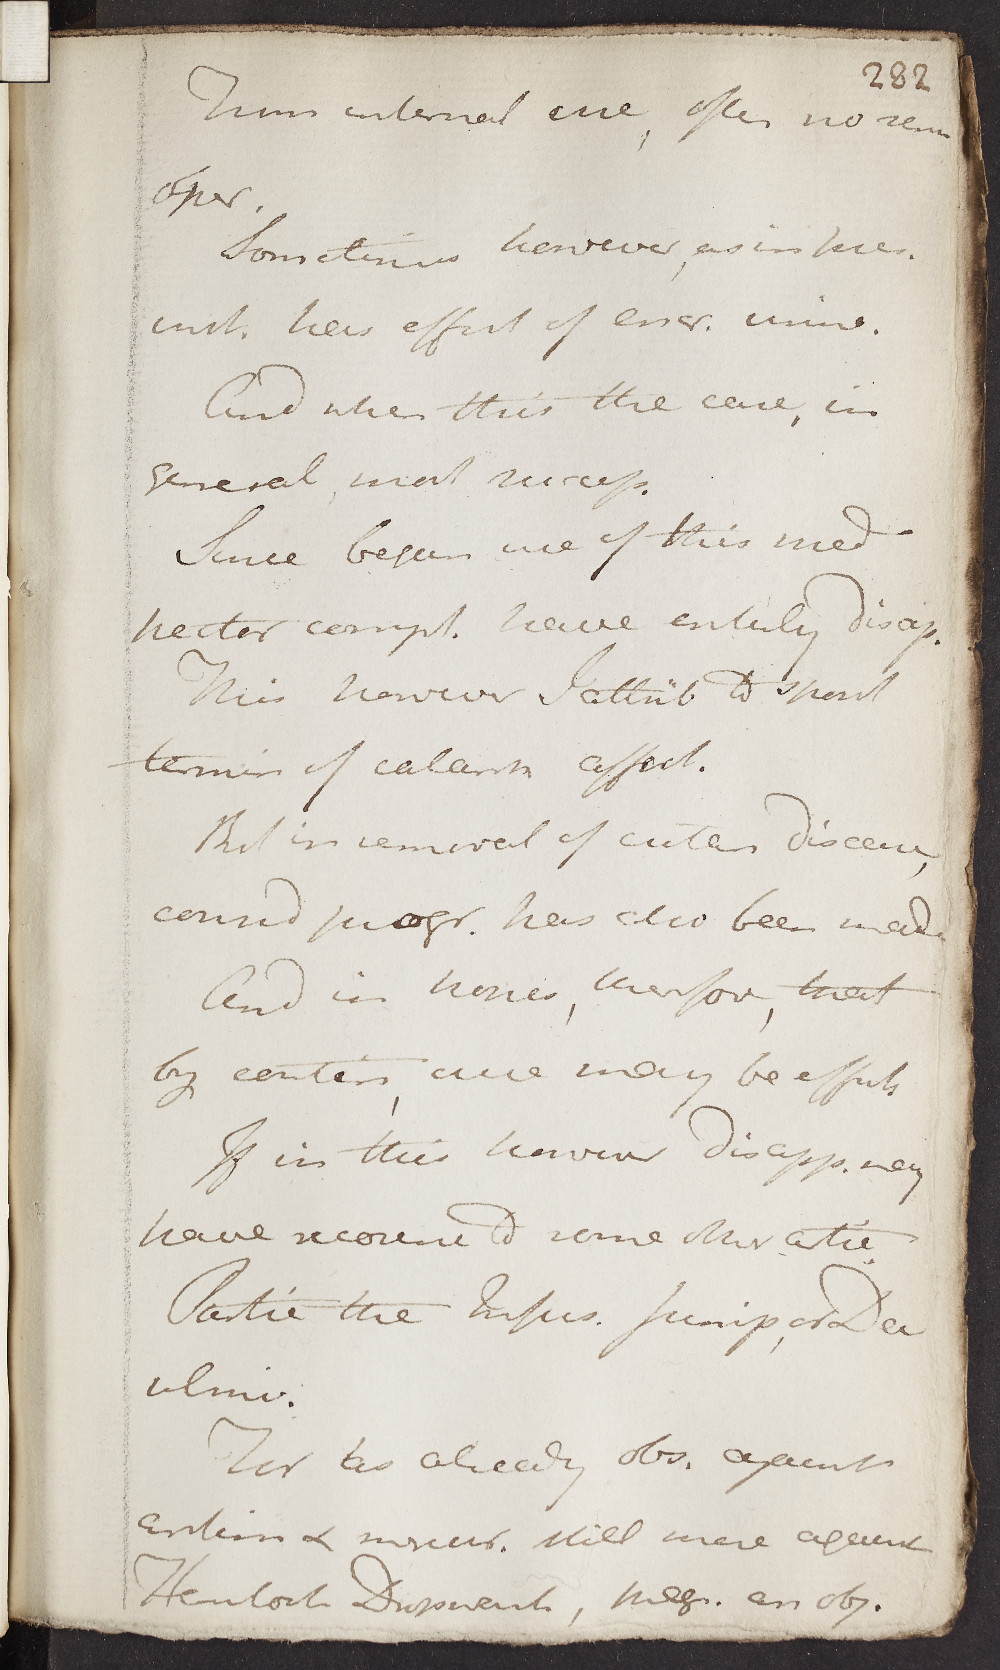 282
From internal use, often no sens
oper.
Sometimes however, as in pres.
inst. has effect of encr. urine.
And when this the case, in
general, most success.
Since began use of this med
pector compl. have entirely disap.
This however I attrib to spont
termin of catarrh affect.
But in removal of cutan disease,
consid progr. has also been made
And in hopes, therefore, that
by contin, cure may be effect
If in this however disapp. may
have recourse to some other artic.
Partic the Infus. Junip, or Dec
ulmi.
For as already obs. against
antim & mercur. still more against
Hemlock Dropwort, pregn. an obj.